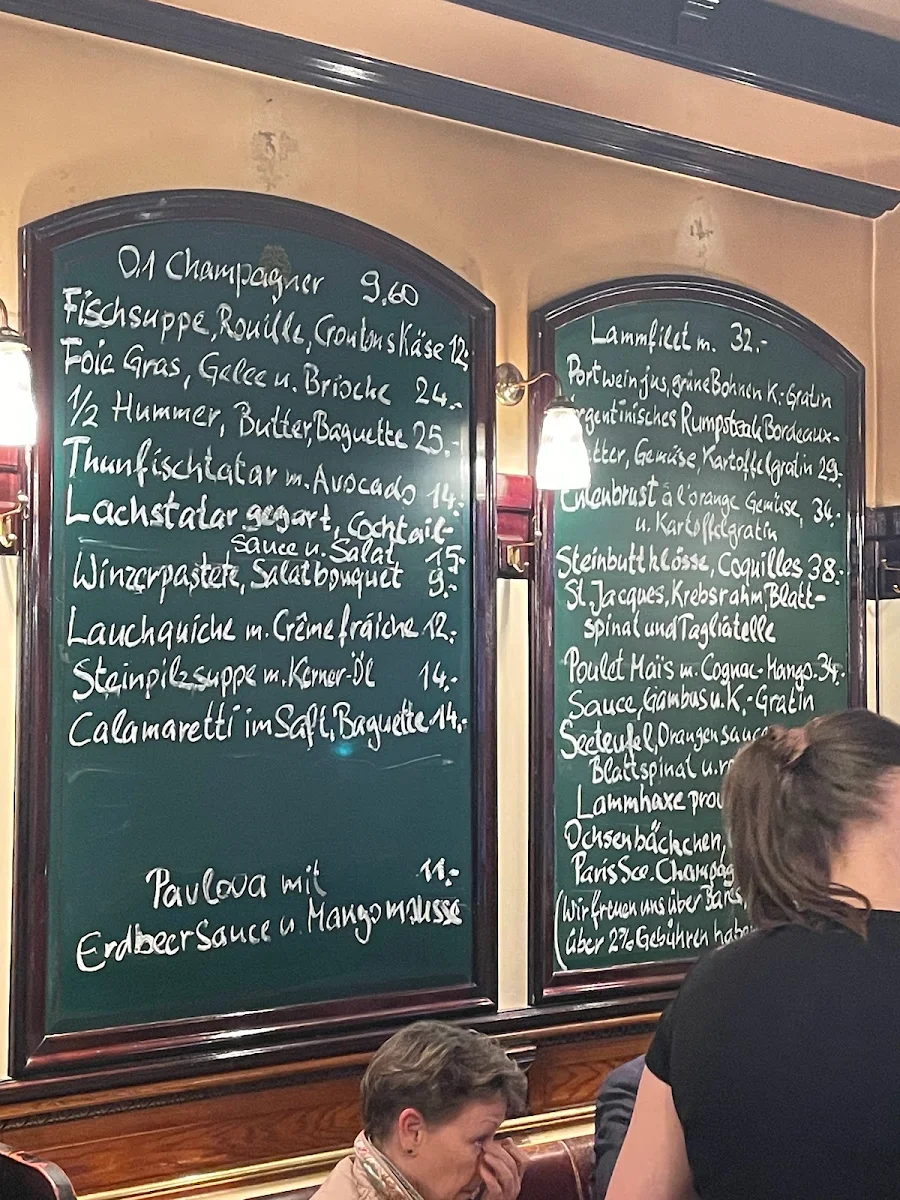 0.1 Champagner 9,60
Fischsuppe, Rouille, Croutons Käse 12,-
Foie Gras, Gelee u. Brioche 24.-
1/2 Hummer, Butter, Baguette 25.-
Thunfischtatar m. Avocado 14.-
Lachstatar gegart, Cocktail-
sauce u. Salat 15.-
Winzerpastete, Salatbouquet 9.-
Lauchquiche m. Crême fraîche 12.-
Steinpilzsuppe m. Kerner-Öl 14.-
Calamaretti im Saft, Baguette 14.-
Pavlova mit 11.-
Erdbeersauce u. Mangomousse
Lammfilet m. 32.-
Portweinjus, grüne Bohnen K.-Gratin
Argentinisches Rumpsteak Bordeaux-
Gemüse, Kartoffelgratin 29.-
Entenbrust á l'orange Gemüse, 34.-
u. Kartoffelgratin
Steinbuttklösse, Coquilles 38.-
St. Jacques, Krebsrahm, Blatt-
spinat und Tagliatelle
Poulet Maïs m. Cognac-Mango. 34.-
Sauce, Gambas u. K.-Gratin
Seeteufel, Orangensauce
Blattspinat u.
Lammhaxe
Ochsenbäckchen,
Paris Sce.
(Wir freuen uns über
über 2% Gebühren